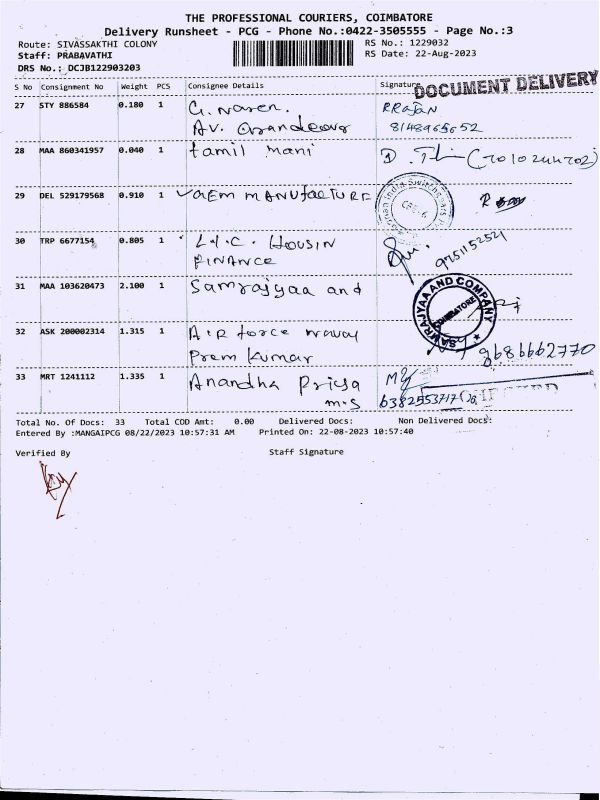 THE PROFESSIONAL COURIERS, COIMBATORE
Delivery Runsheet - PCG - Phone No.:0422-3505555 - Page No.:3
Route: SIVASSAKTHI COLONY RS No.: 1229032
Staff: PRABAVATHI RS Date: 22-Aug-2023
DRS No.: DCJB122903203
S No Consignment No Weight PCS Consignee Details Signature
DOCUMENT DELIVERY
27 STY 886584 0.180 1 G. Naren. RRajan
Av. 8148965652
28 MAA 860341957 0.040 1 tamil mani
29 DEL 529179568 0.910 1 GEM MANUFACTURE
CBE-6
30 TRP 6677154 0.805 1 L.I.C. HOUSIN
FINANCE 9751152521
31 MAA 103620473 2.100 1 Samrajyaa and
SAMRAJYAA AND COMPANY
COIMBATORE
32 ASK 200002314 1.315 1 Air force
Prem Kumar 9686662770
33 MRT 1241112 1.335 1 Anandha Priya
m.s 6382553717
Total No. Of Docs: 33 Total COD Amt: 0.00 Delivered Docs: Non Delivered Docs:
Entered By :MANGAIPCG 08/22/2023 10:57:31 AM Printed On: 22-08-2023 10:57:40
Verified By Staff Signature